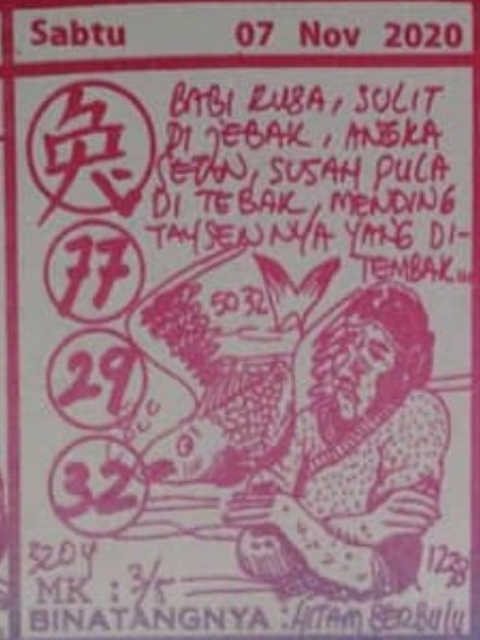 Sabtu 07 Nov 2020
兔
BABI RUSA, SULIT
DI JEBAK, ANGKA
SETAN, SUSAH PULA
DI TEBAK, MENDING
TAYSENNYA YANG DI-
TEMBAK...
77
5032
29
32
5204
MK : 3/5
BINATANGNYA : HITAM BERBULU